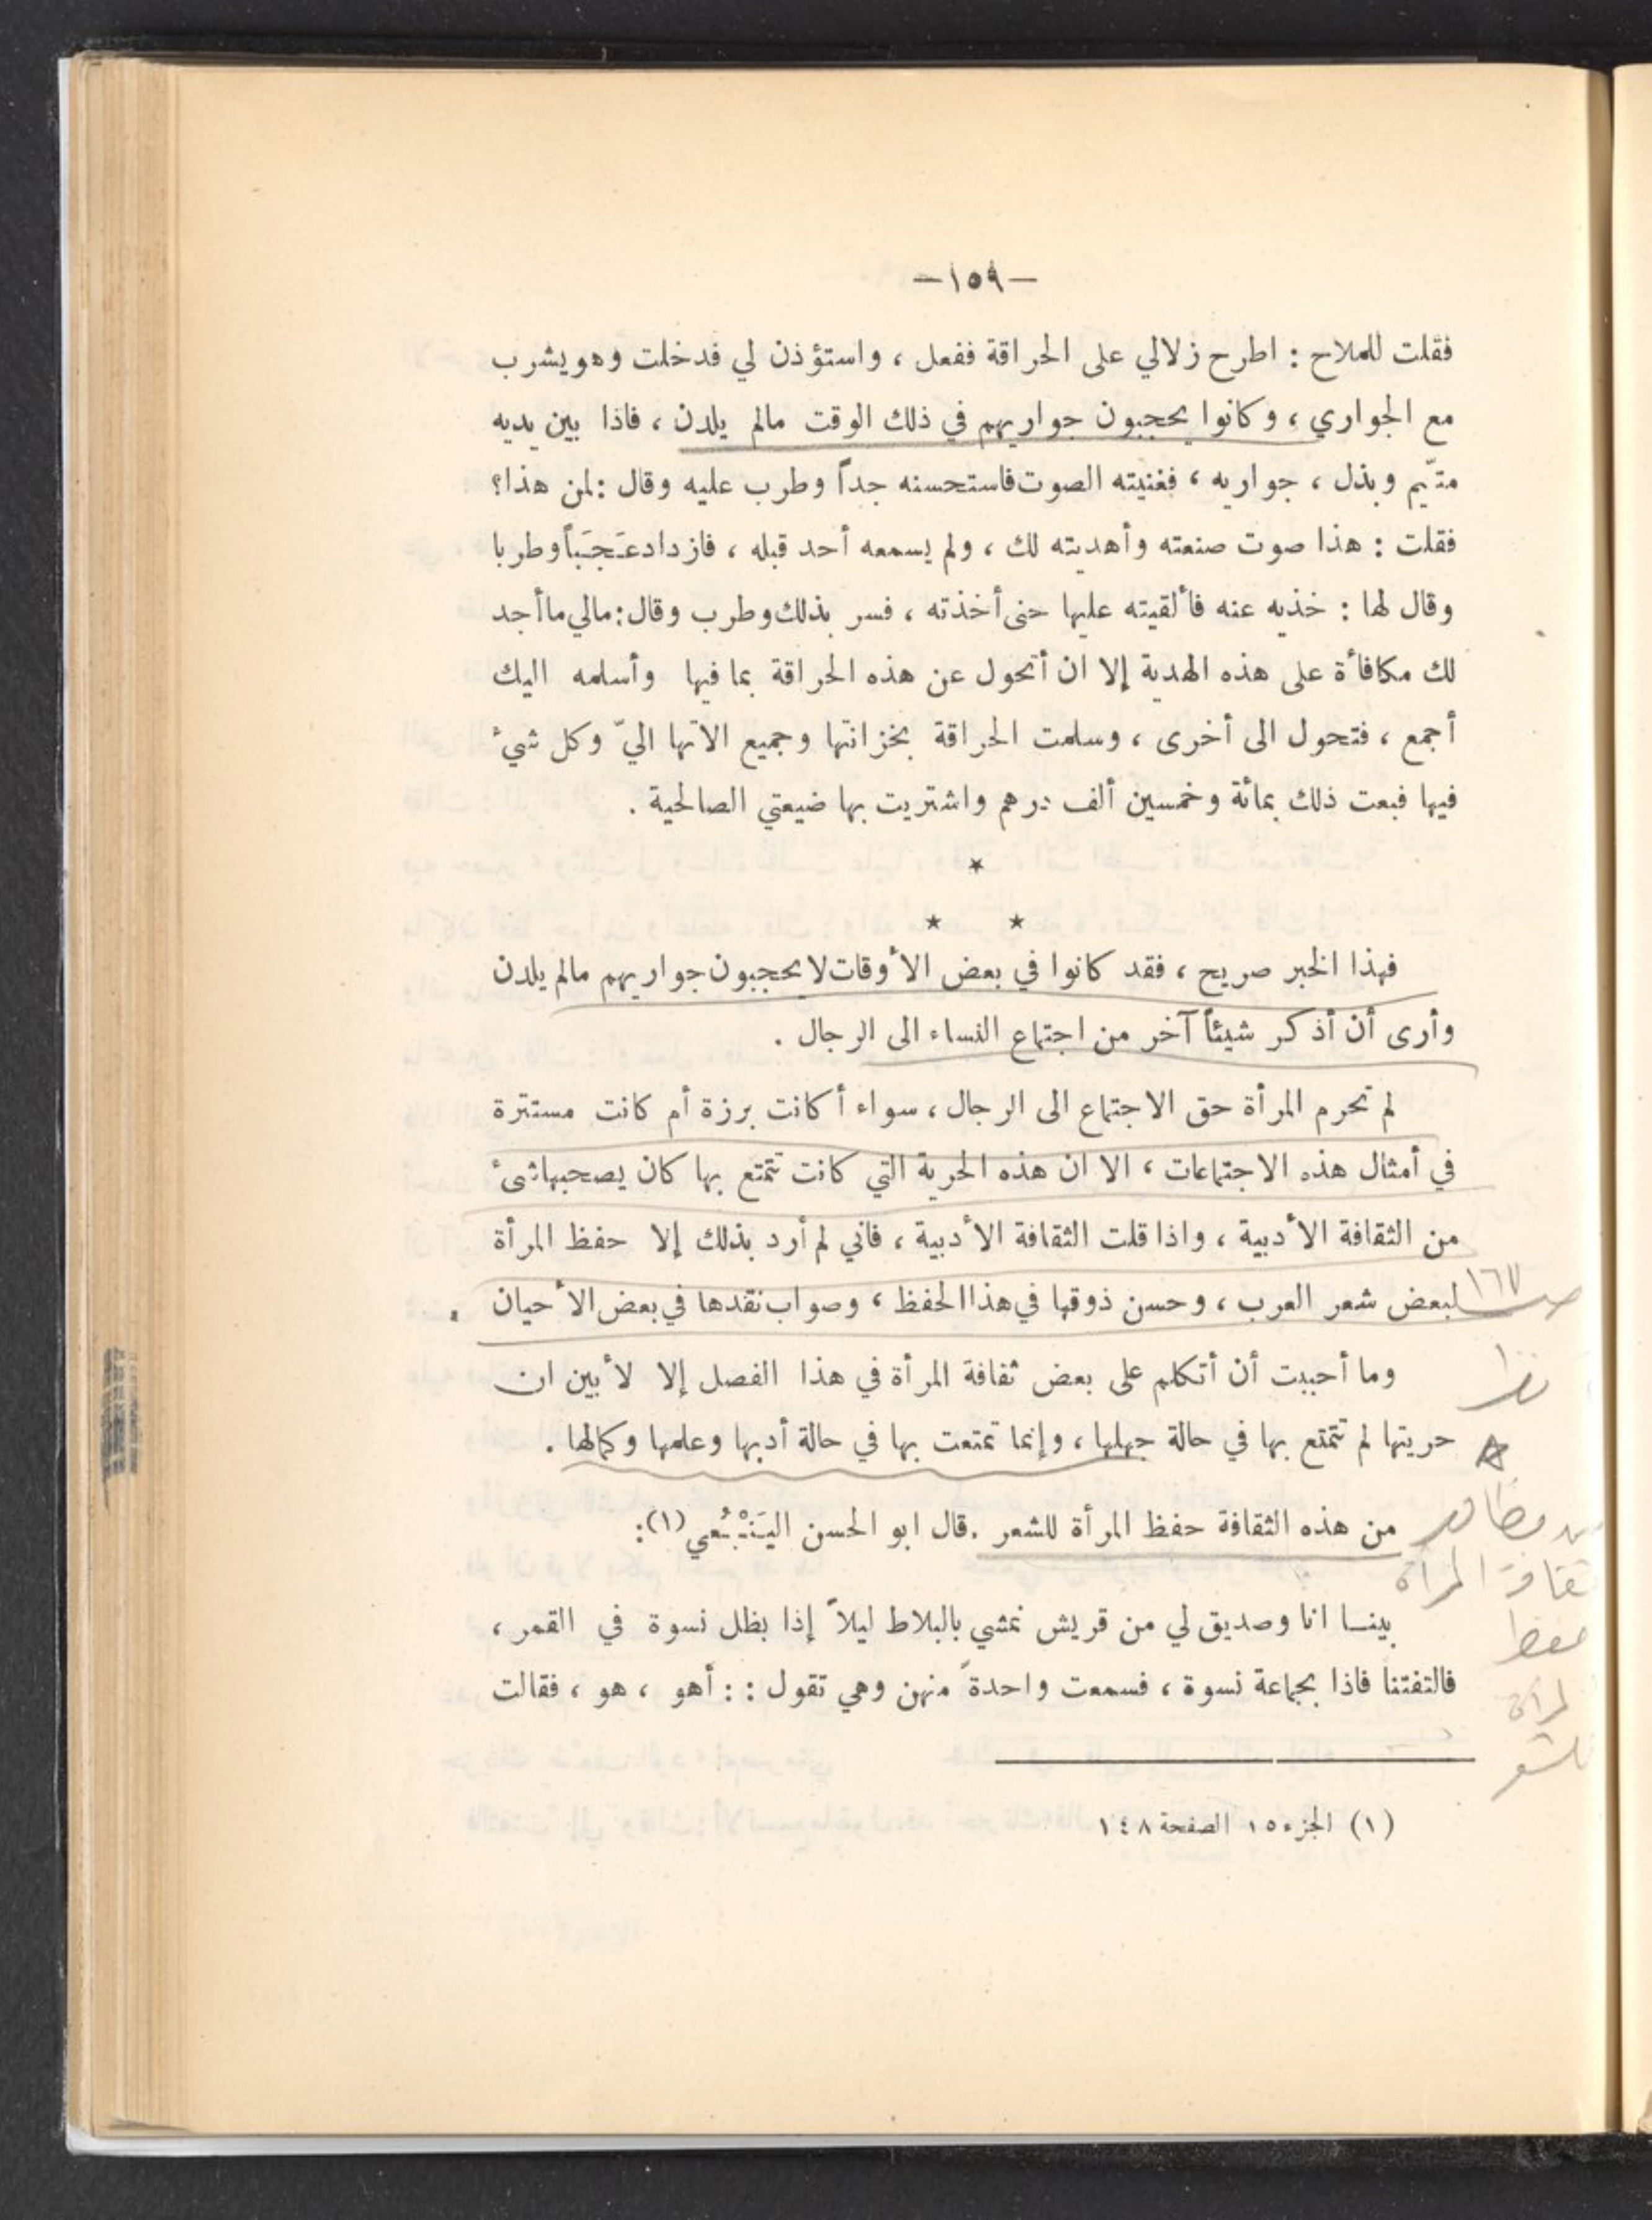 —١٥٩—
فقلت للملاح : اطرح زلالي على الحراقة ففعل ، واستؤذن لي فدخلت وهو يشرب
مع الجواري ، وكانوا يحجبون جواريهم في ذلك الوقت مالم يلدن ، فاذا بين يديه
متيّم وبذل ، جواريه ، فغنيته الصوت فاستحسنه جداً وطرب عليه وقال : لمن هذا؟
فقلت : هذا صوت صنعته وأهديته لك ، ولم يسمعه أحد قبله ، فازداد عَجَباً وطربا
وقال لها : خذيه عنه فألقيته عليها حتى أخذته ، فسر بذلك وطرب وقال : مالي ما أجد
لك مكافأة على هذه الهدية إلا ان أتحول عن هذه الحراقة بما فيها وأسلمه اليك
أجمع ، فتحول الى أخرى ، وسلمت الحراقة بخزانتها وجميع الاتها اليّ وكل شيء
فيها فبعت ذلك بمائة وخمسين ألف درهم واشتريت بها ضيعتي الصالحية .
*
* *
فهذا الخبر صريح ، فقد كانوا في بعض الأوقات لا يحجبون جواريهم مالم يلدن
وأرى أن أذكر شيئاً آخر من اجتماع النساء الى الرجال .
لم تحرم المرأة حق الاجتماع الى الرجال ، سواء أكانت برزة أم كانت مستترة
في أمثال هذه الاجتماعات ، الا ان هذه الحرية التي كانت تتمتع بها كان يصحبها شيء
من الثقافة الأدبية ، واذا قلت الثقافة الأدبية ، فاني لم أرد بذلك إلا حفظ المرأة
لبعض شعر العرب ، وحسن ذوقها في هذا الحفظ ، وصواب نقدها في بعض الأحيان .
ص ١٦٧
وما أحببت أن أتكلم على بعض ثقافة المرأة في هذا الفصل إلا لأبين ان
حريتها لم تتمتع بها في حالة جهلها ، وإنما تمتعت بها في حالة أدبها وعلمها وكمالها .
من هذه الثقافة حفظ المرأة للشعر . قال ابو الحسن اليَنْبُعي (١) :
مظاهر
ثقافة المرأة
حفظ
المرأة
للشعر
بينا انا وصديق لي من قريش نمشي بالبلاط ليلاً إذا بظل نسوة في القمر ،
فالتفتنا فاذا بجماعة نسوة ، فسمعت واحدةً منهن وهي تقول : : أهو ، هو ، فقالت
(١) الجزء ١٥ الصفحة ١٤٨